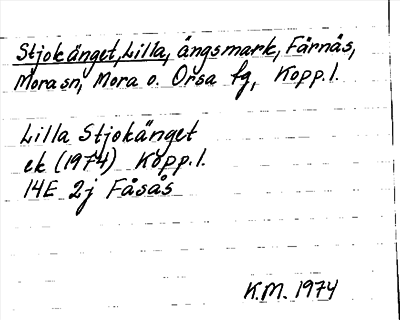 Stjokänget, Lilla, ängsmark, Färnäs,
Mora sn, Mora o. Orsa fg, Kopp. l.
Lilla Stjokänget
ek (1974) Kopp. l.
14E 2j Fåsås
K.M. 1974